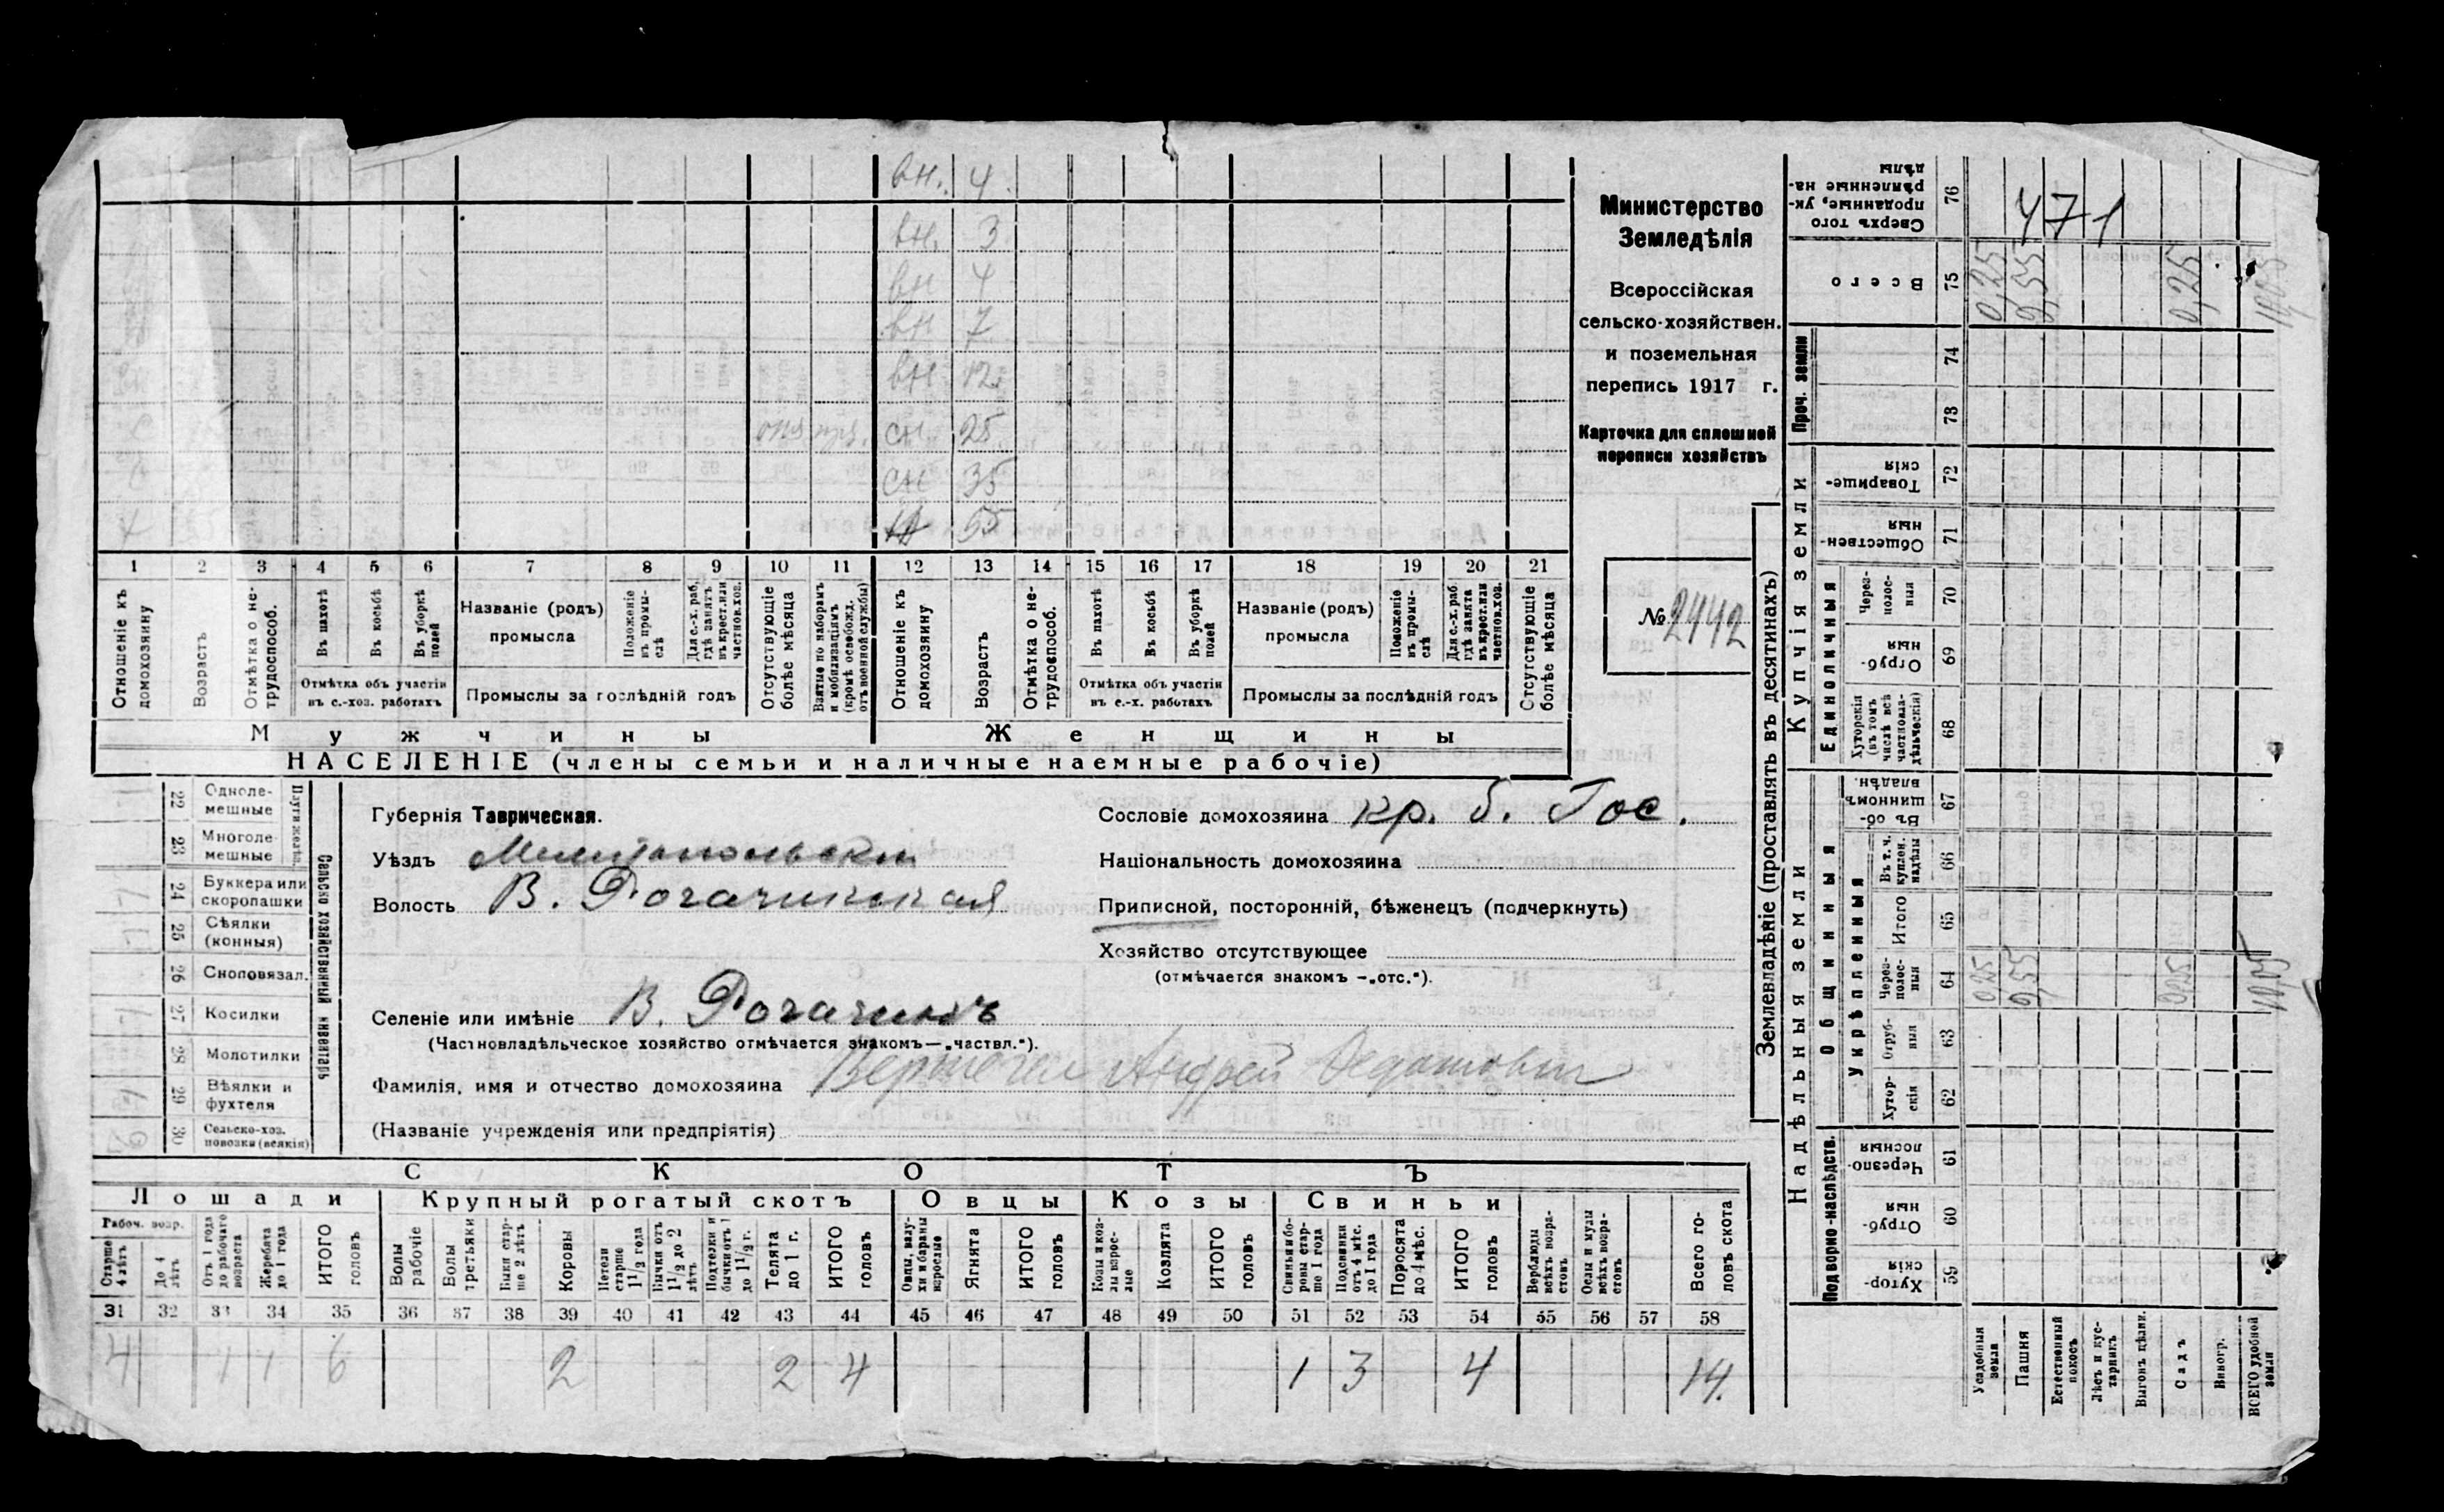 вн. 4.
вн. 3
вн 4
вн 7
вн 12
сн. 25
сн 35
55
1 2 3 4 5 6 7 8 9 10 11 12 13 14 15 16 17 18 19 20 21
Отношеніе къ домохозяину
Возрастъ
Отмѣтка о не-трудоспособ.
Въ пахотѣ
Въ косьбѣ
Въ уборкѣ полей
Отмѣтка объ участіи въ с.-хоз. работахъ
Названіе (родъ) промысла
Положеніе въ промы-слѣ
Для с.-х. раб. гдѣ занятъ въ крест. или частнов. хоз.
Промыслы за послѣдній годъ
Отсутствующіе болѣе мѣсяца
Взятые по наборамъ и мобилизаціямъ (кромѣ освобожд. отъ военной службы)
Отношеніе къ домохозяину
Возрастъ
Отмѣтка о не-трудоспособ.
Въ пахотѣ
Въ косьбѣ
Въ уборкѣ полей
Отмѣтка объ участіи въ с.-х. работахъ
Названіе (родъ) промысла
Положеніе въ промы-слѣ
Для с.-х. раб. гдѣ занята въ крест. или частнов. хоз.
Промыслы за послѣдній годъ
Отсутствующіе болѣе мѣсяца
Мужчины
Женщины
НАСЕЛЕНІЕ (члены семьи и наличные наемные рабочіе)
Министерство
Земледѣлія
Всероссійская
сельско-хозяйствен.
и поземельная
перепись 1917 г.
Карточка для сплошной
переписи хозяйствъ
№ 2442
Сельско хозяйственный инвентарь
Плуги желѣз.
22 Однолемешные
23 Многоле-мешные
24 Буккера или скоропашки
25 Сѣялки (конныя)
26 Сноповязал.
27 Косилки
28 Молотилки
29 Вѣялки и фухтеля
30 Сельско-хоз. повозки (всякія)
Губернія Таврическая.
Уѣздъ Мелитопольскій
Волость В. Рогачикская
Селеніе или имѣніе В. Рогачикъ
(Частновладѣльческое хозяйство отмѣчается знакомъ—„частвл.“).
Фамилія, имя и отчество домохозяина Андрей
(Названіе учрежденія или предпріятія)
Сословіе домохозяина кр. б. Гос.
Національность домохозяина
Приписной, посторонній, бѣженецъ (подчеркнуть)
Хозяйство отсутствующее
(отмѣчается знакомъ —„отс.“).
СКОТЪ
Лошади
Крупный рогатый скотъ
Овцы
Козы
Свиньи
Рабоч. возр.
Старше 4 лѣтъ
До 4 лѣтъ
Отъ 1 года до рабочаго возраста
Жеребята до 1 года
ИТОГО головъ
Волы рабочіе
Волы третьяки
Быки стар-ше 2 лѣтъ
Коровы
Нетели старше 1½ года
Бычки отъ 1½ до 2 лѣтъ
Подтелки и бычки отъ 1 до 1½ г.
Телята до 1 г.
ИТОГО головъ
Овцы, валу-хи и бараны взрослые
Ягнята
ИТОГО головъ
Козы и коз-лы взрос-лые
Козлята
ИТОГО головъ
Свиньи бо-ровы стар-ше 1 года
Подсвинки отъ 4 мѣс. до 1 года
Поросята до 4 мѣс.
ИТОГО головъ
Верблюды всѣхъ возра-стовъ
Ослы и мулы всѣхъ возра-стовъ
Всего го-ловъ скота
31 32 33 34 35 36 37 38 39 40 41 42 43 44 45 46 47 48 49 50 51 52 53 54 55 56 57 58
4 1 1 6 2 2 4 1 3 4 14.
Землевладѣніе (проставлять въ десятинахъ)
Купчія земли
Надѣльныя земли
Сверхъ того проданные, ук-рѣпленные на-дѣлы 76 471
Всего 75 0,25 9,55 0,25 10,05
Проч. земли 74
73
Товарище-скія 72
Обществен-ныя 71
Единоличныя
Через-полос-ныя 70
Отруб-ныя 69
Хуторскія (въ томъ числѣ всѣ частновла-дѣльческія) 68
Общинныя
Въ об-щинномъ владѣн. 67
Укрѣпленныя
Въ т. ч. куплен. надѣлы 66
Итого 65
Через-полос-ныя 64 0,25 9,55 0,25 10,05
Отруб-ныя 63
Хутор-скія 62
Подворно-наслѣдств.
Черезпо-лосныя 61
Отруб-ныя 60
Хутор-скія 59
Усадебная земля
Пашня
Естественный покосъ
Лѣсъ и кус-тарникъ
Выгонъ цѣлин.
Садъ
Виногр.
ВСЕГО удобной земли